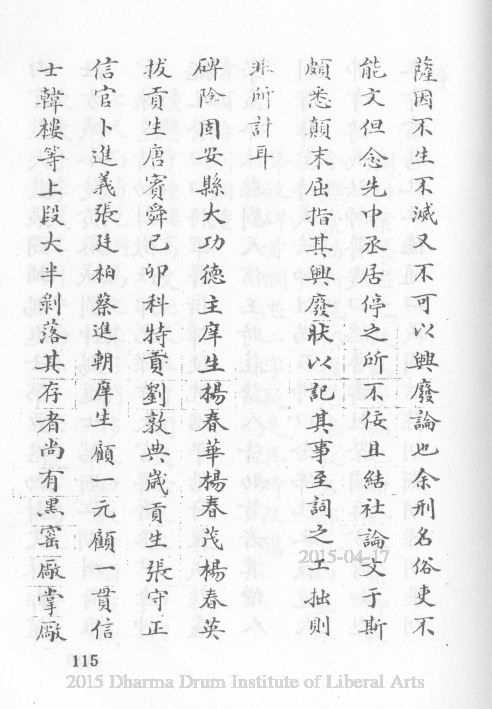 薩因不生不滅又不可以興廢論也余刑名俗吏不
能文但念先中丞居停之所不佞且結社論文于斯
頗悉顛末屈指其興廢狀以記其事至詞之工拙則
非所計耳
碑陰固安縣大功德主庠生楊春華楊春茂楊春英
拔貢生唐賓舜乙卯科特貢劉敦典歲貢生張守正
信官卜進義張廷柏蔡進朝庠生顧一元顧一貫信
士韓樓等上段大半剝落其存者尚有黑窰廠掌廠
2015-04-17
115
2015 Dharma Drum Institute of Liberal Arts